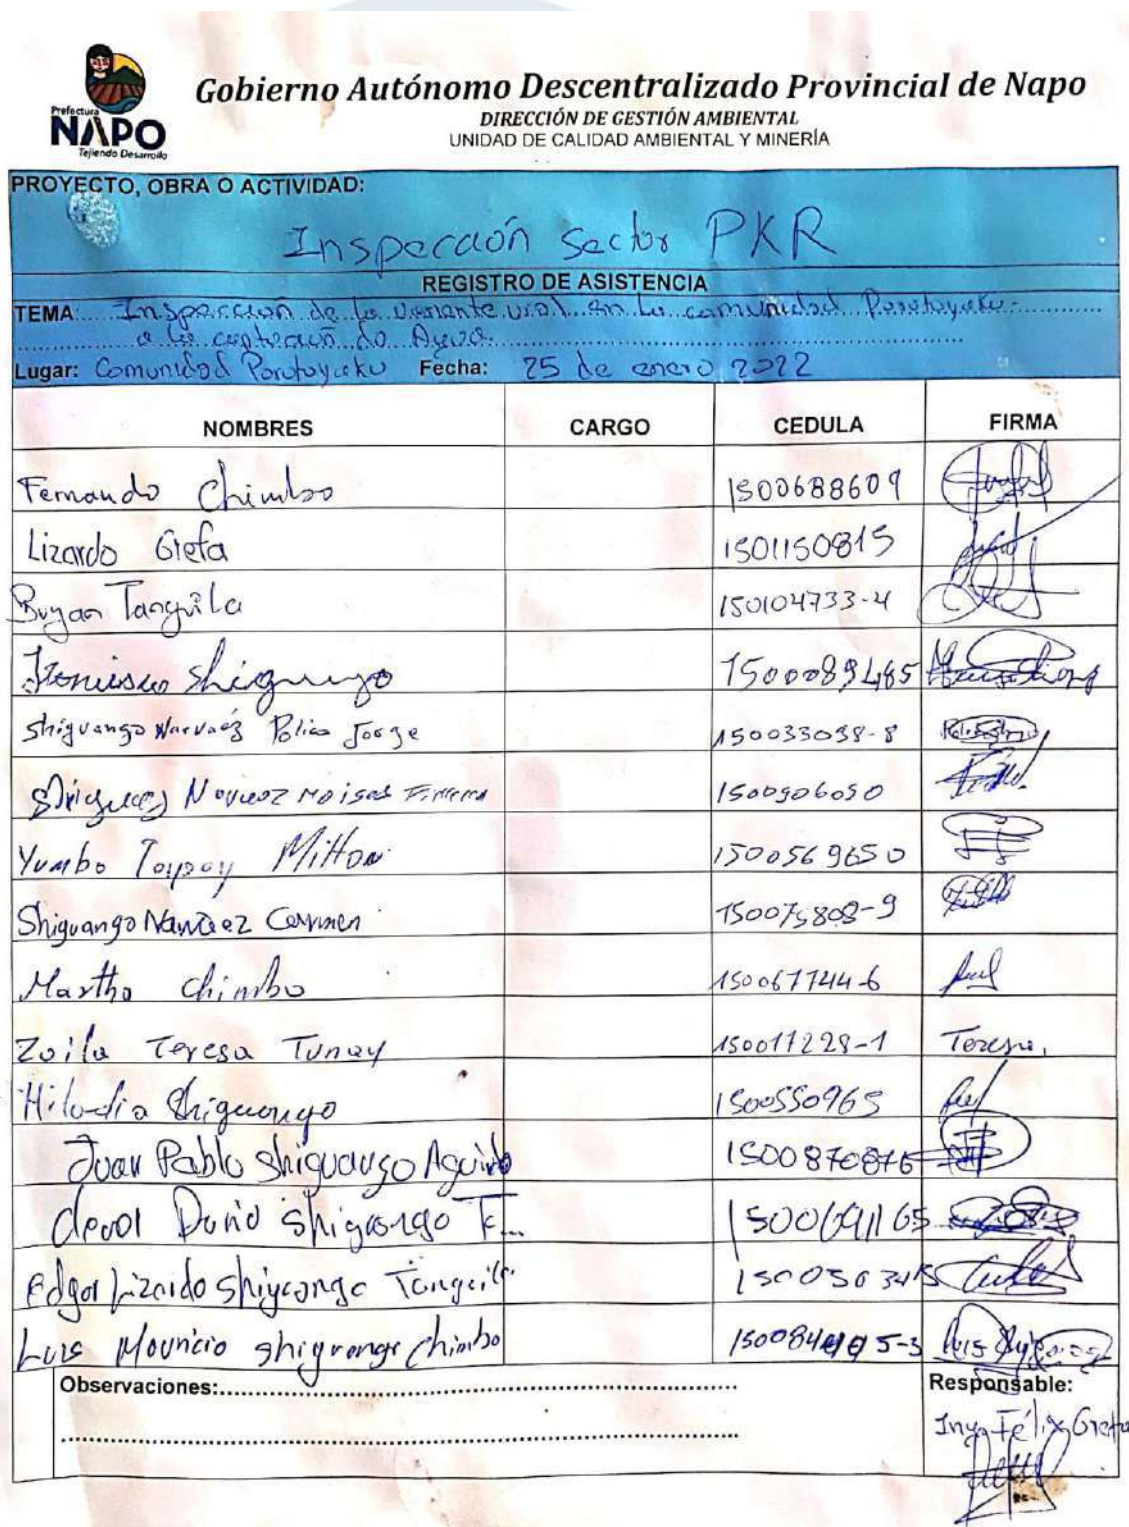 Prefectura
NAPO
Tejiendo Desarrollo
Gobierno Autónomo Descentralizado Provincial de Napo
DIRECCIÓN DE GESTIÓN AMBIENTAL
UNIDAD DE CALIDAD AMBIENTAL Y MINERÍA
PROYECTO, OBRA O ACTIVIDAD:
Inspección Sector PKR
REGISTRO DE ASISTENCIA
TEMA: Inspección de la variante vial en la comunidad Porotoyaku
a la captación de Agua.
Lugar: Comunidad Porotoyaku Fecha: 25 de enero 2022
NOMBRES CARGO CEDULA FIRMA
Fernando Chimbo 1500688609
Lizardo Grefa 1501150815
Bryan Tanguila 150104733-4
Shiguango 1500089485
Shiguango Narvaez Jorge 150033038-8
Moises 1500906050
Yumbo Milton 1500569650
Shiguango Narvaez Carmen 150075808-9
Martha Chimbo 150067744-6
Zoila Teresa Tunay 150017228-1 Teresa.
Hilodia Shiguango 1500550965
Juan Pablo Shiguango Aguinda 1500870876
David Shiguango T... 1500691165
Edgar Lizardo Shiguango Tanguila
Luis Mauricio Shiguango Chimbo Luis
Observaciones:
Responsable:
Ing. Félix Grefa